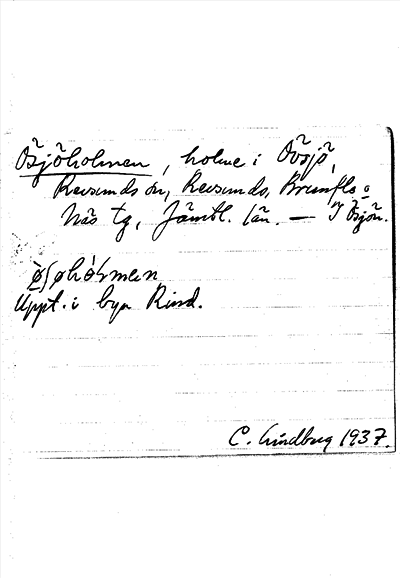 Ösjöholmen, holme i Övsjö,
Revsunds sn, Revsunds, Brunflo o.
Näs tg, Jämtl. län. — I Ösjön.
Uppt. i byn Rind.
C. Lindberg 1937.